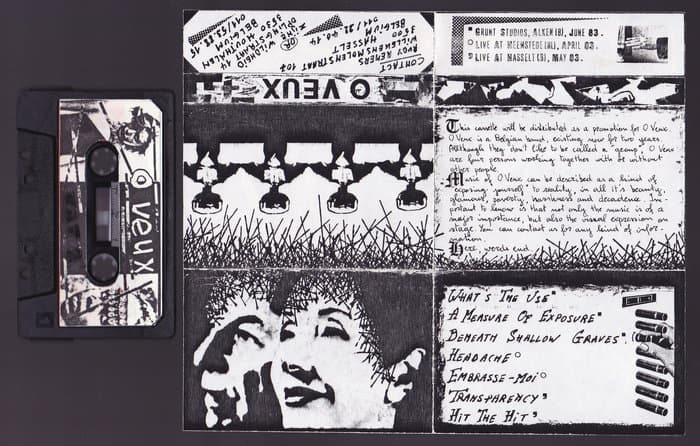 O veux
CONTACT
WILLEKENSMOLENSTRAAT 107
3500 HASSELT
BELGIUM
OR
3530 HOUTHALEN
BELGIUM
O VEUX
GRUNT STUDIOS, ALKEN(B), JUNE 83.
LIVE AT HEEMSTEDE(HL), APRIL 83.
LIVE AT HASSELT(B), MAY 83.
This cassette will be distributed as a promotion for O Veux.
O Veux is a Belgian band, existing now for two years.
Although they don't like to be called a "group". O Veux
are four persons working together with be without
other people.
Music of O Veux can be described as a kind of
"exposing yourself" to reality, in all it's beauty,
glamour, poverty, harshness and decadence. Im-
portant to know is that not only the music is of a
major importance, but also the visual expression on
stage. You can contact us for any kind of infor-
mation.
Here, words end.
WHAT'S THE USE
A MEASURE OF EXPOSURE
BENEATH SHALLOW GRAVES
HEADACHE
EMBRASSE-MOI
TRANSPARENCY
HIT THE HIT